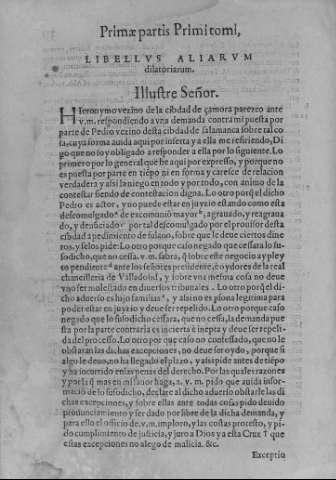 Primæ partis Primi tomi,
LIBELLVS ALIARVM
dilatoriarum.
Illustre Señor.
HIeronymo vezino de la cibdad de çamora parezco ante
v.m. respondiendo a vna demanda contra mi puesta por
parte de Pedro vezino desta cibdad de salamanca sobre tal co
sa, cuya forma auida aqui por inserta y a ella me refiriendo, Di
go que no soy obligado a responder a ella por lo siguiente. Lo
primero por lo general q̃ he aqui por expresso, y porque no
es puesta por parte en tiẽpo ni en forma y caresce de relacion
verdadera y assi la niego en todo y por todo, con animo de la
contestar siendo de contestacion digna. Lo otro porq̃ el dicho
Pedro es actor, y no puede estar en juyzio estando como esta
descomulgado de excomunió mayor, agrauado, y reagraua
do, y denũciado por tal descomulgado por el prouisor desta
cibdad a pedimiento de fulano, sobre que le deue ciertos dine
ros, y selos pide: Lo otro porque caso negado que cessara lo su
sodicho, que no cessa. v.m. sabra, q̃ sobre este negocio ay pley
to pendiente ante los señores presidente, e oydores de la real
chancilleria de Valladolid, y sobre vna mesma cosa no deue
yo ser molestado en diuersos tribunales. Lo otro porq̃ el di-
cho aduerso es hijo familias, y alsi no es psona legitima para
poder estar en juyzio y deue ser repelido. Lo otro porque caso
negado que lo susodicho cessara, que no cessa, la demanda pue
sta por la parte contraria es incierta e inepta y deue ser repeli-
da del processo. Lo otro por que caso no confessado, que no le
obstaran las dichas excepciones, no deue ser oydo, porque si
algo le deuo, no ha llegado el plazo, y assi pide antes de tiẽpo
y ha incurrido enlas penas del derecho. Por las quales razones
y por las q̃ mas en mi fauor haga, a. v. m. pido que auida infor-
maciõ de lo susodicho, declare al dicho aduerso obstarle las di
chas excepciones, y sobre ellas ante todas cosas pido deuido
pronunciamiento y ser dado por libre de la dicha demanda, y
para ello el officio de. v.m. imploro, y las costas protesto, y pi-
do cumplimiento de justicia, y juro a Dios y a esta Cruz † que
estas excepciones no alego de malicia. &c.
Exceptio